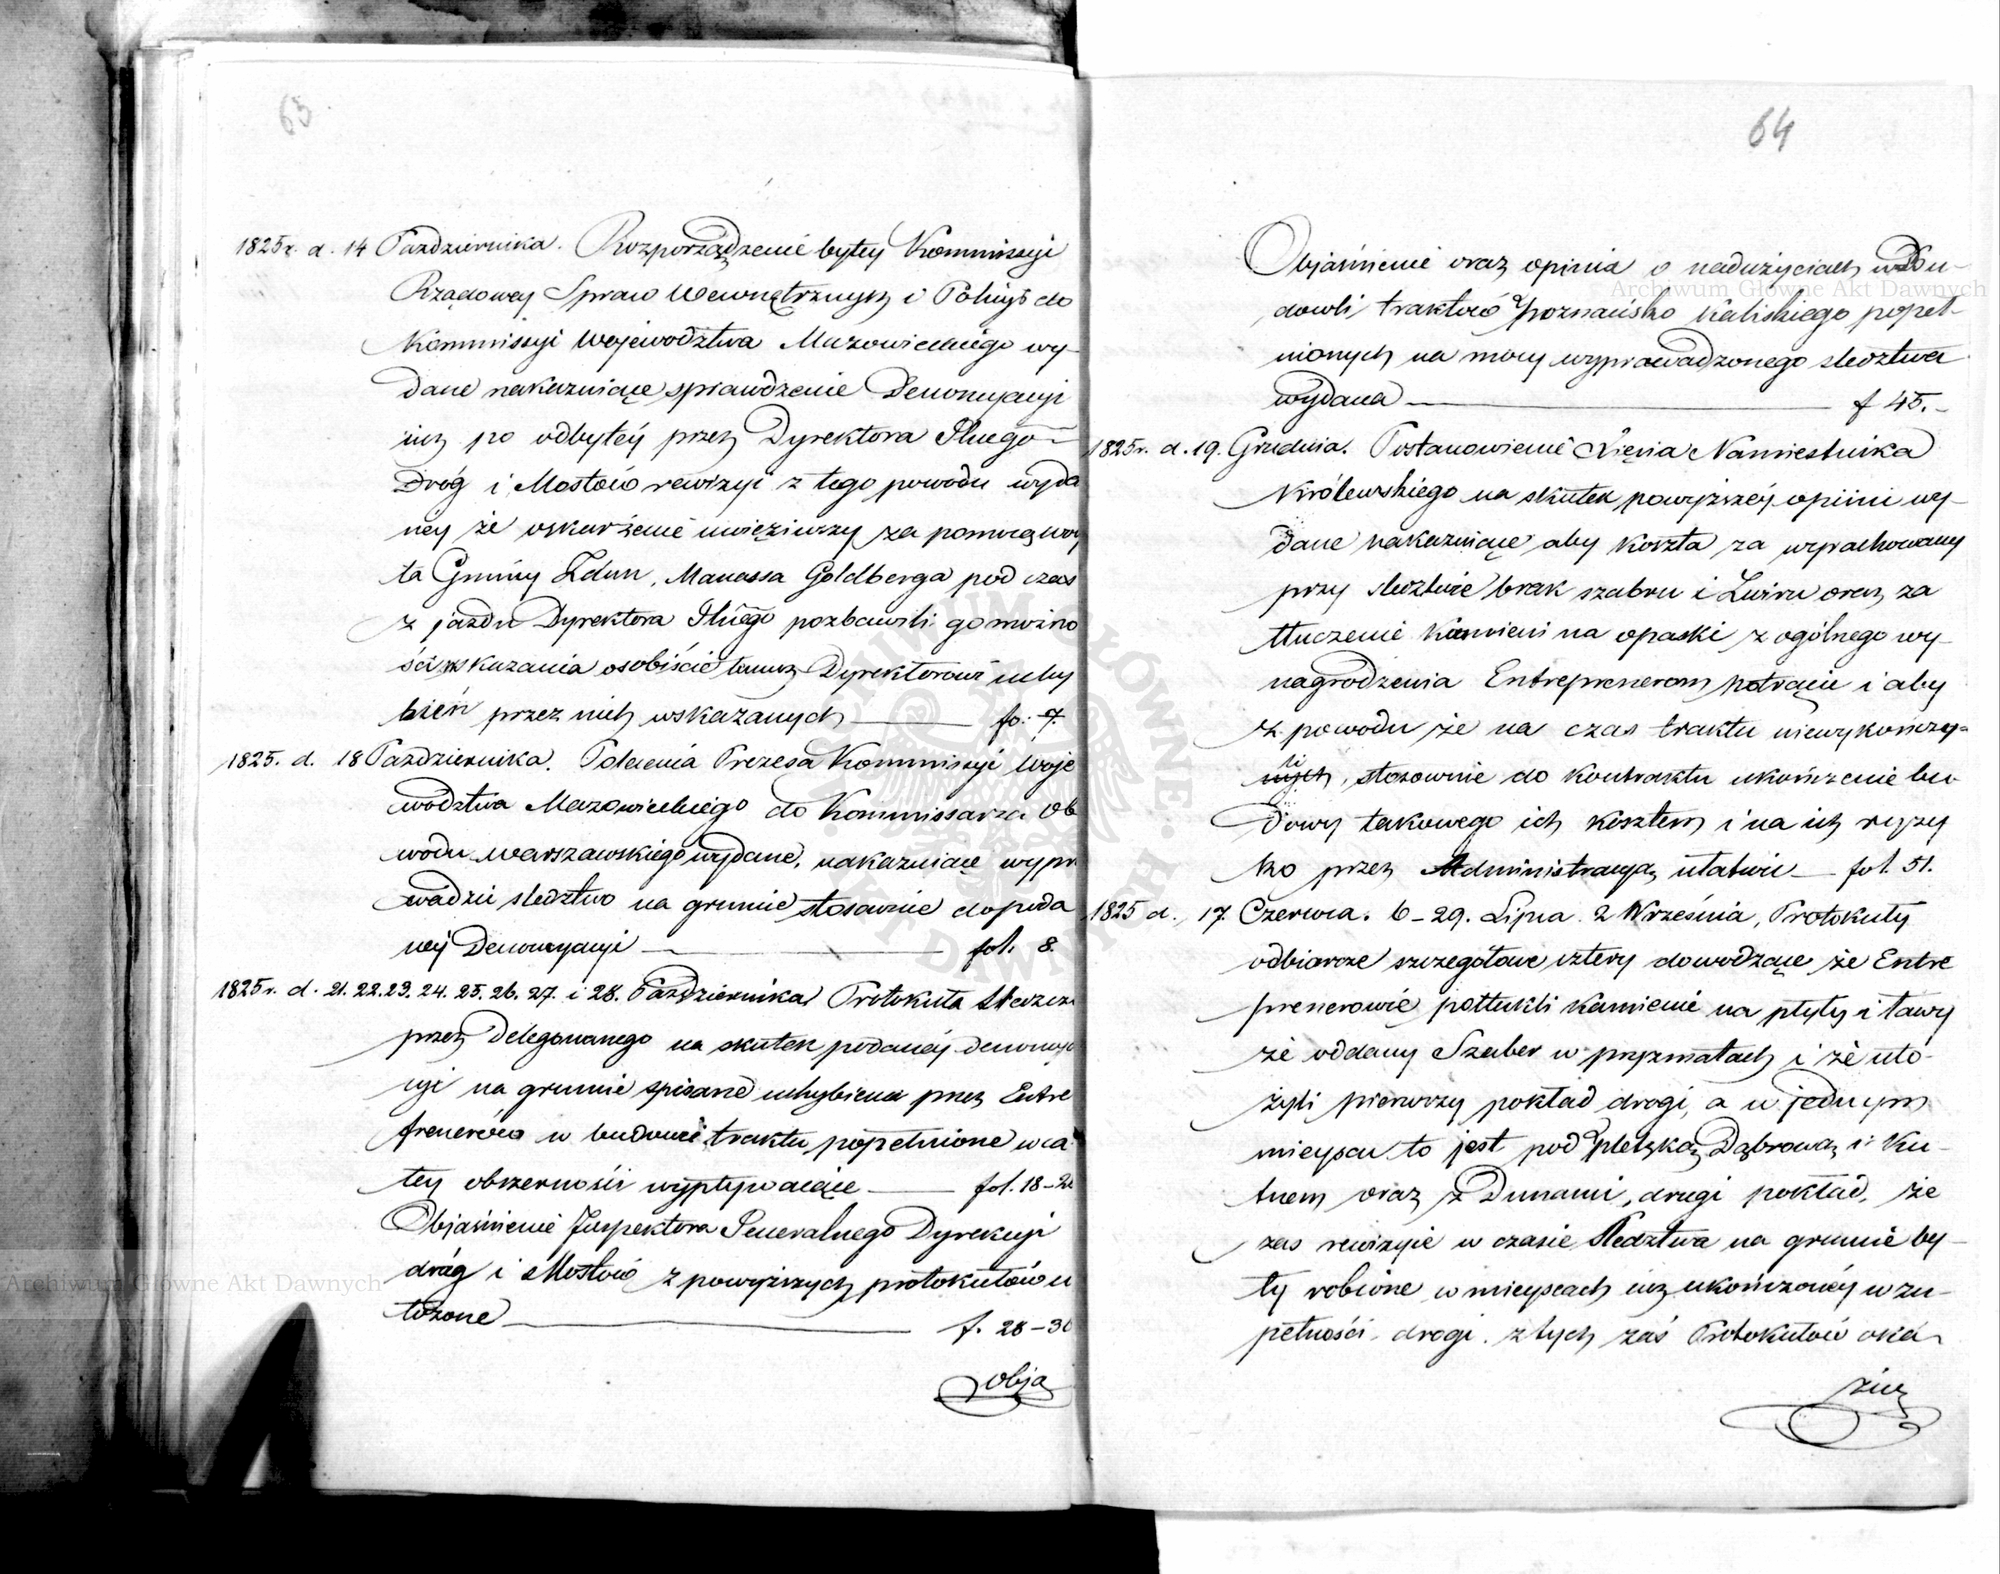 63
1825r. d. 14 Października. Rozporządzenie byłey Kommissyi
Rządowey Spraw Wewnętrznych i Policyi do
Kommissyi Województwa Mazowieckiego wy-
dane nakazuiące sprawdzenie Denoncyacyi
iuż po odbytéy przez Dyrektora
Dróg i Mostów rewizyi z tego powodu wyda
ney że oskarżenie uwięziwszy za pomocą woy
ta Gminy Zdun, Manassa Goldberga pod czas
z jazdu Dyrektora pozbawili go możno
ści wskazania osobiście temuż Dyrektorowi uchy
bień przez nich wskazanych fo: 7.
1825. d. 18 Października. Polecenia Prezesa Kommissyi Woje
wództwa Mazowieckiego do Kommissarza Ob
wodu Warszawskiego wydane, nakazuiące wypr
wadzić sledztwo na gruncie stosownie do poda
néj Denoncyacyi fol. 8.
1825r. d. 21. 22. 23. 24. 25. 26. 27. i 28. Października Protokuła
przez Delegowanego na skutek podanéj denoncya
cyi na gruncie spisane uchybienia przez Entre
prenerów w budowie traktu popełnione w ca
łey obszerności wypływaiące fol. 18-2
Objaśnienie Inspektora Generalnego Dyrekcyi
dróg i Mostów z powyższych protokułów u
łożone f. 28-3
Obja
64
Objaśnienie oraz opinia o nadużyciach w Bu-
dowli traktów Poznańsko Kaliskiego popeł-
nionych na mocy wyprowadzonego sledztwa
wydana f 45.
1825r. d. 19. Grudnia. Postanowienie Xięcia Namiestnika
Królewskiego na skutek powyższéy opinii wy-
dane nakazuiące aby koszta za wyrachowany
przy sledztwie brak szabru i Zwiru oraz za
tłuczenie kamieni na opaski z ogólnego wy-
nagrodzenia Entreprenerom potrącić i aby
z powodu że na czas traktu niewykończy-
li, stosownie do kontraktu ukończenie bu
dowy takowego ich kosztem i na ich ryzy
ko przez Administracyą ułatwić fol. 51.
1825 d. 17. Czerwca. 6-29. Lipca 2 Września, Protokuły
odbiorcze szczegółowe cztery dowodzące że Entre
prenerowie potłukli kamienie na płyty i ławy
że oddany Szaber w pryzmatach i że uło-
żyli pierwszy pokład drogi, a w jednym
mieyscu to jest pod Dąbrową i Ku-
tnem oraz z Dunami, drugi pokład, że
zas rewizyie w czasie sledztwa na gruncie by-
ły robione w mieyscach iuż ukończonéy w zu-
pełności drogi. z tych zaś Protokułów oka-
zuię